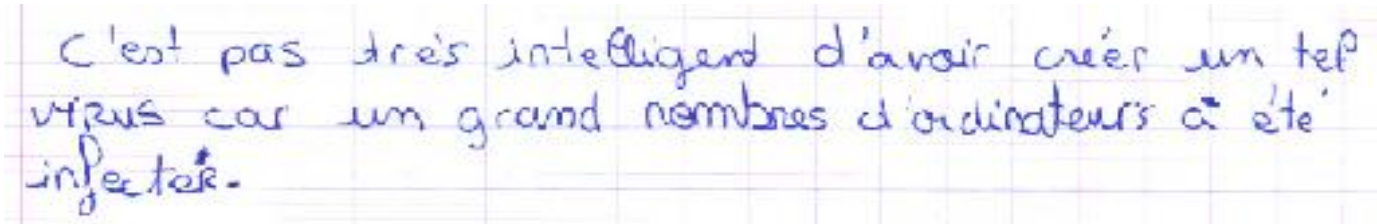 C'est pas très intelligent d'avoir créer un tel
virus car un grand nombres d'ordinateurs à été
infecter.